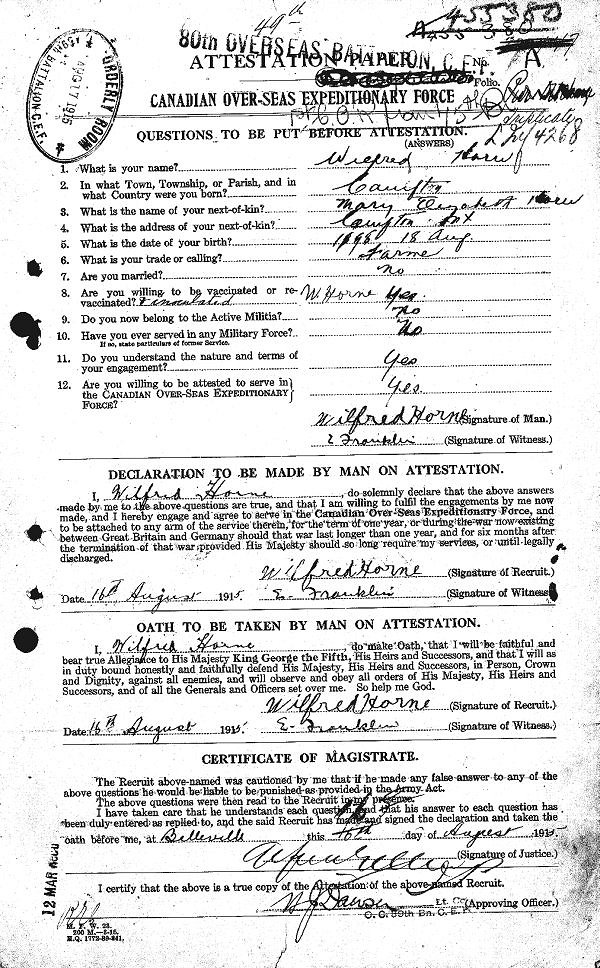 49th
455380
A 455 380
80th OVERSEAS BATTALION, C.E.F.
ATTESTATION PAPER
No.
A
Folio.
CANADIAN OVER-SEAS EXPEDITIONARY FORCE
Triplicate
ORDERLY ROOM
AUG 17 1915
BATTALION C.E.F.
QUESTIONS TO BE PUT BEFORE ATTESTATION.
(ANSWERS)
1. What is your name? Wilfred Horne
2. In what Town, Township, or Parish, and in
what Country were you born? Canifton
3. What is the name of your next-of-kin? Mary Elizabeth Horne
4. What is the address of your next-of-kin? Canifton Ont
5. What is the date of your birth? 1898 18 Aug
6. What is your trade or calling? Farme
7. Are you married? no
8. Are you willing to be vaccinated or re-
vaccinated? & inoculated W. Horne Yes
9. Do you now belong to the Active Militia? No
10. Have you ever served in any Military Force? No
If so, state particulars of former Service.
11. Do you understand the nature and terms of
your engagement? Yes
12. Are you willing to be attested to serve in
the CANADIAN OVER-SEAS EXPEDITIONARY
FORCE? Yes.
Wilfred Horne (Signature of Man.)
E Franklin (Signature of Witness.)
DECLARATION TO BE MADE BY MAN ON ATTESTATION.
I, Wilfred Horne, do solemnly declare that the above answers
made by me to the above questions are true, and that I am willing to fulfil the engagements by me now
made, and I hereby engage and agree to serve in the Canadian Over-Seas Expeditionary Force, and
to be attached to any arm of the service therein, for the term of one year, or during the war now existing
between Great Britain and Germany should that war last longer than one year, and for six months after
the termination of that war provided His Majesty should so long require my services, or until legally
discharged.
Wilfred Horne (Signature of Recruit.)
Date 16th August 1915 E. Franklin (Signature of Witness)
OATH TO BE TAKEN BY MAN ON ATTESTATION.
I, Wilfred Horne, do make Oath, that I will be faithful and
bear true Allegiance to His Majesty King George the Fifth, His Heirs and Successors, and that I will as
in duty bound honestly and faithfully defend His Majesty, His Heirs and Successors, in Person, Crown
and Dignity, against all enemies, and will observe and obey all orders of His Majesty, His Heirs and
Successors, and of all the Generals and Officers set over me. So help me God.
Wilfred Horne (Signature of Recruit.)
Date 16th August 1915 E. Franklin (Signature of Witness.)
CERTIFICATE OF MAGISTRATE.
The Recruit above-named was cautioned by me that if he made any false answer to any of the
above questions he would be liable to be punished as provided in the Army Act.
The above questions were then read to the Recruit in my presence.
I have taken care that he understands each question, and that his answer to each question has
been duly entered as replied to, and the said Recruit has made and signed the declaration and taken the
oath before me, at Belleville this 16th day of August 1915
(Signature of Justice.)
I certify that the above is a true copy of the Attestation of the above-named Recruit.
(Approving Officer.)
Lt. Co
O. C. 80th Bn. C.E.F.
12 MAR
M. F. W. 23.
200 M.—5-15.
H.Q. 1772-39-241.